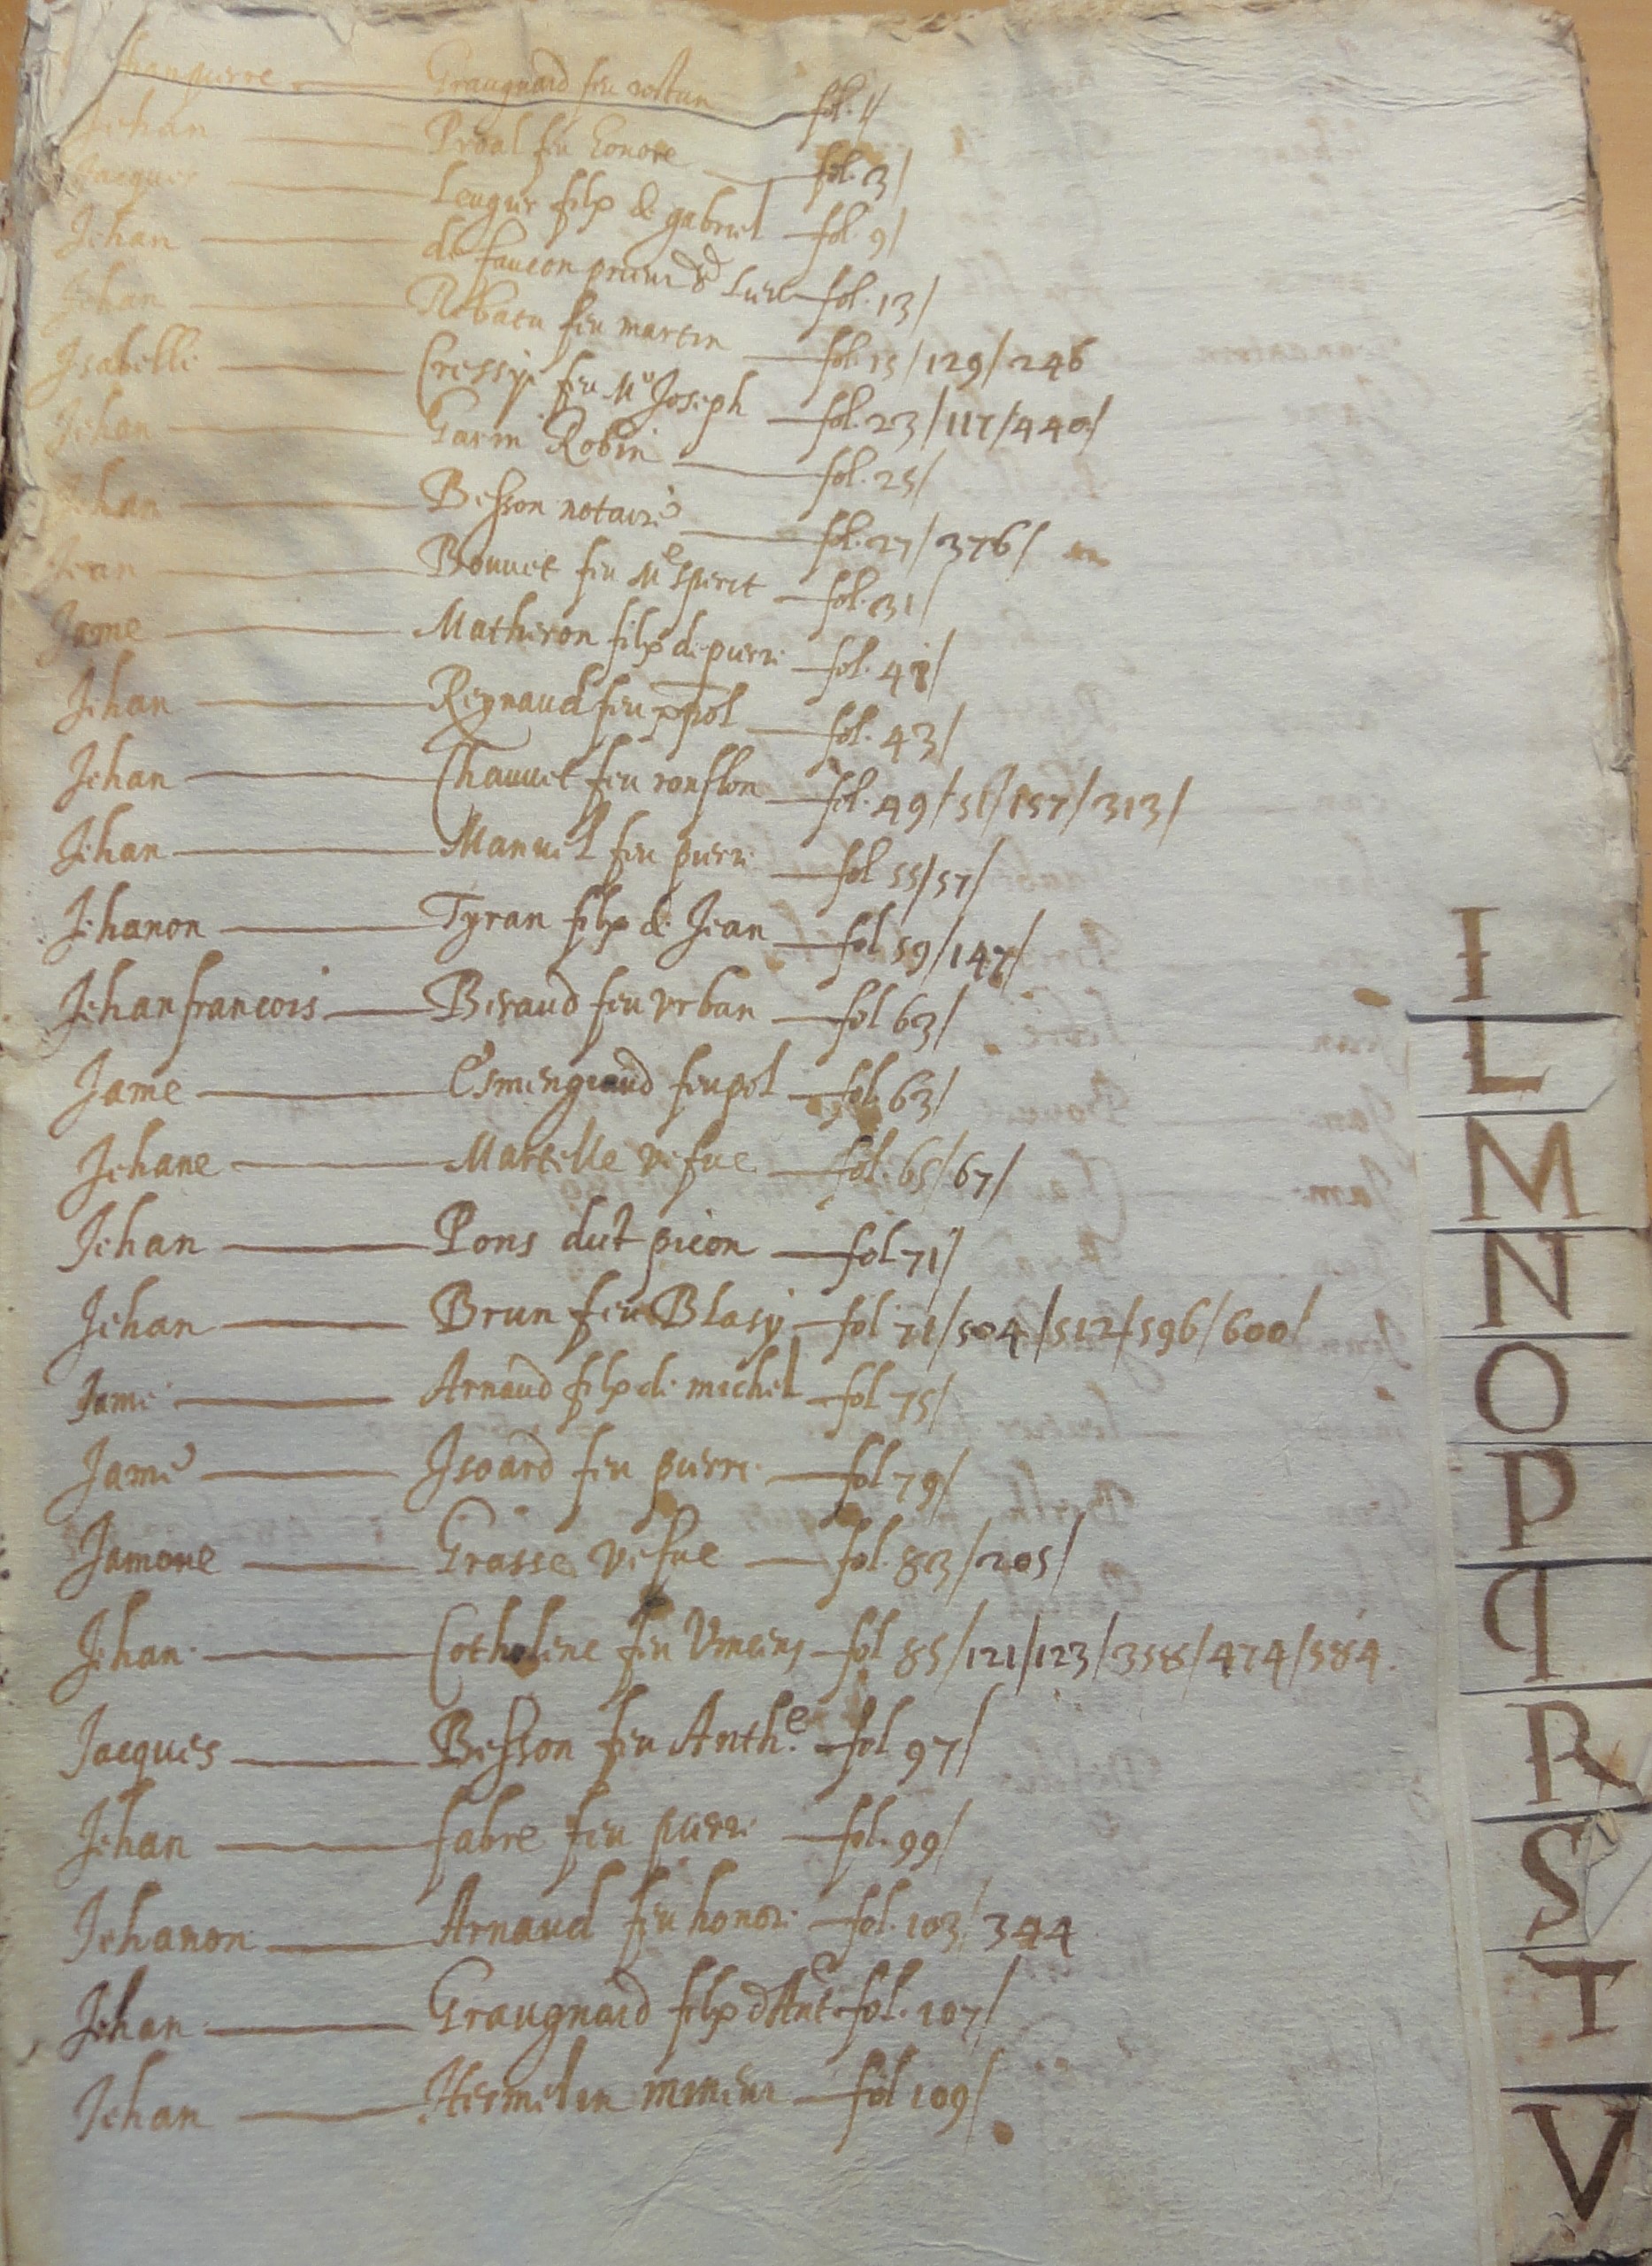 Jehanpierre Graugnard feu rostan fol. 1/
Jehan Proal feu honore fol. 3/
Jacques Leugier filz de gabriel fol. 9/
Jehan de faucon prieur de Luere fol. 13/
Jehan Rebatu feu martin fol. 15/129/246
Isabelle Cressye feu Me Joseph fol. 23/117/440/
Jehan Garin Robin fol. 25/
Jehan Besson notaire fol. 27/376/
Jean Bouuet feu Me Sperit fol. 31/
Jame Matheron filz de pierre fol. 41/
Jehan Reynaud feu fol. 43/
Jehan Chauuet feu fol. 49/51/157/313/
Jehan Manuel feu pierre fol 55/57/
Jehanon Tyran filz de Jean fol 59/147/
Jehanfrancois Beraud feu vrban fol 63/
Jame Esmengeaud feu pol fol. 63/
Jehane Martelle vefue fol. 65/67/
Jehan Pons dit picon fol 71/
Jehan Brun feu Blasy fol 71/504/512/596/600/
Jame Arnaud filz de michel fol 75/
Jame Isoard feu pierre fol 79/
Jamone Grasse vefue fol. 83/205/
Jehan Cotholene feu Vincens fol 85/121/123/358/474/584
Jacques Besson feu Anth.e fol 97/
Jehan fabre feu pierre fol. 99/
Jehanon Arnaud feu honore fol. 103/344
Jehan Graugnard filz dAnt.e fol. 107/
Jehan Hermelin fol 109/
I
L
M
N
O
P
Q
R
S
T
V